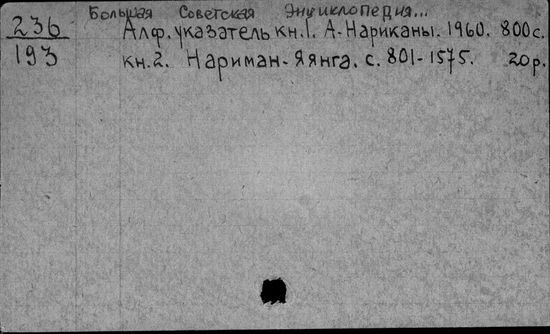 Большая Советская Энциклопедия...
236 Алф. указатель кн.1. А-Нариканы. 1960. 800с.
193 кн.2. Нариман-Яянга. с. 801-1575. 20р.